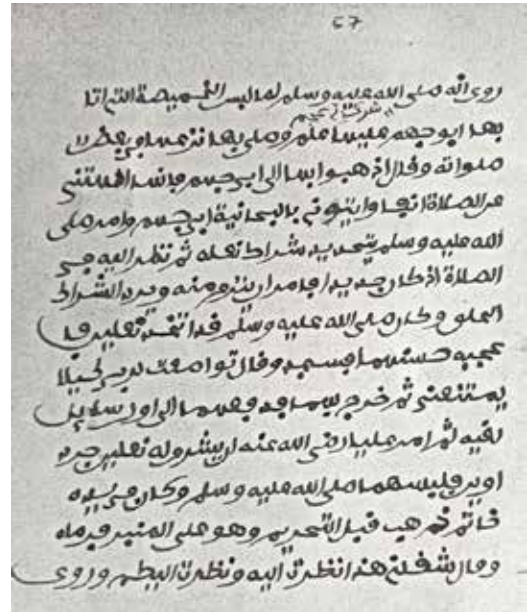 67
روى انه صلى الله عليه وسلم لما لبس الخميصة التي اتا
بها ابو جهم عليها علم وصلى بها نزعها بعد
صلواته وقال اذهبوا بها الى ابي جهم فانها الهتني
عن الصلاة انفا وايتوني بانبجانية ابي جهم وامر صلى
الله عليه وسلم بتجديد شراط نعله ثم نظر اليه في
الصلاة اذ كان جديدا فامر ان ينزع منه ويرد الشراط
الخلق وكان صلى الله عليه وسلم قد اتخذ نعلين فا
عجبه حسنهما فسجد وقال تواضعت لربي كيلا
يمقتني ثم خرج بهما فدفعهما الى اول سايل
لقيه ثم امر عليا رضي الله عنه ان يشتري له نعلين جرد
اوين فلبسهما صلى الله عليه وسلم وكان في يده
خاتم ذهب قبل التحريم وهو على المنبر فرماه
وقال شغلني هذا نظرة اليه ونظرة اليكم وروي